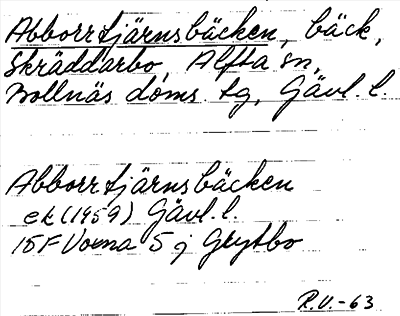 Abborrtjärnsbäcken, bäck,
Skräddarbo, Alfta sn,
Bollnäs doms. tg, Gävl. l.
Abborrtjärnsbäcken
ek (1959) Gävl. l.
15F Voxna 5 j Grytbo
R.V.-63